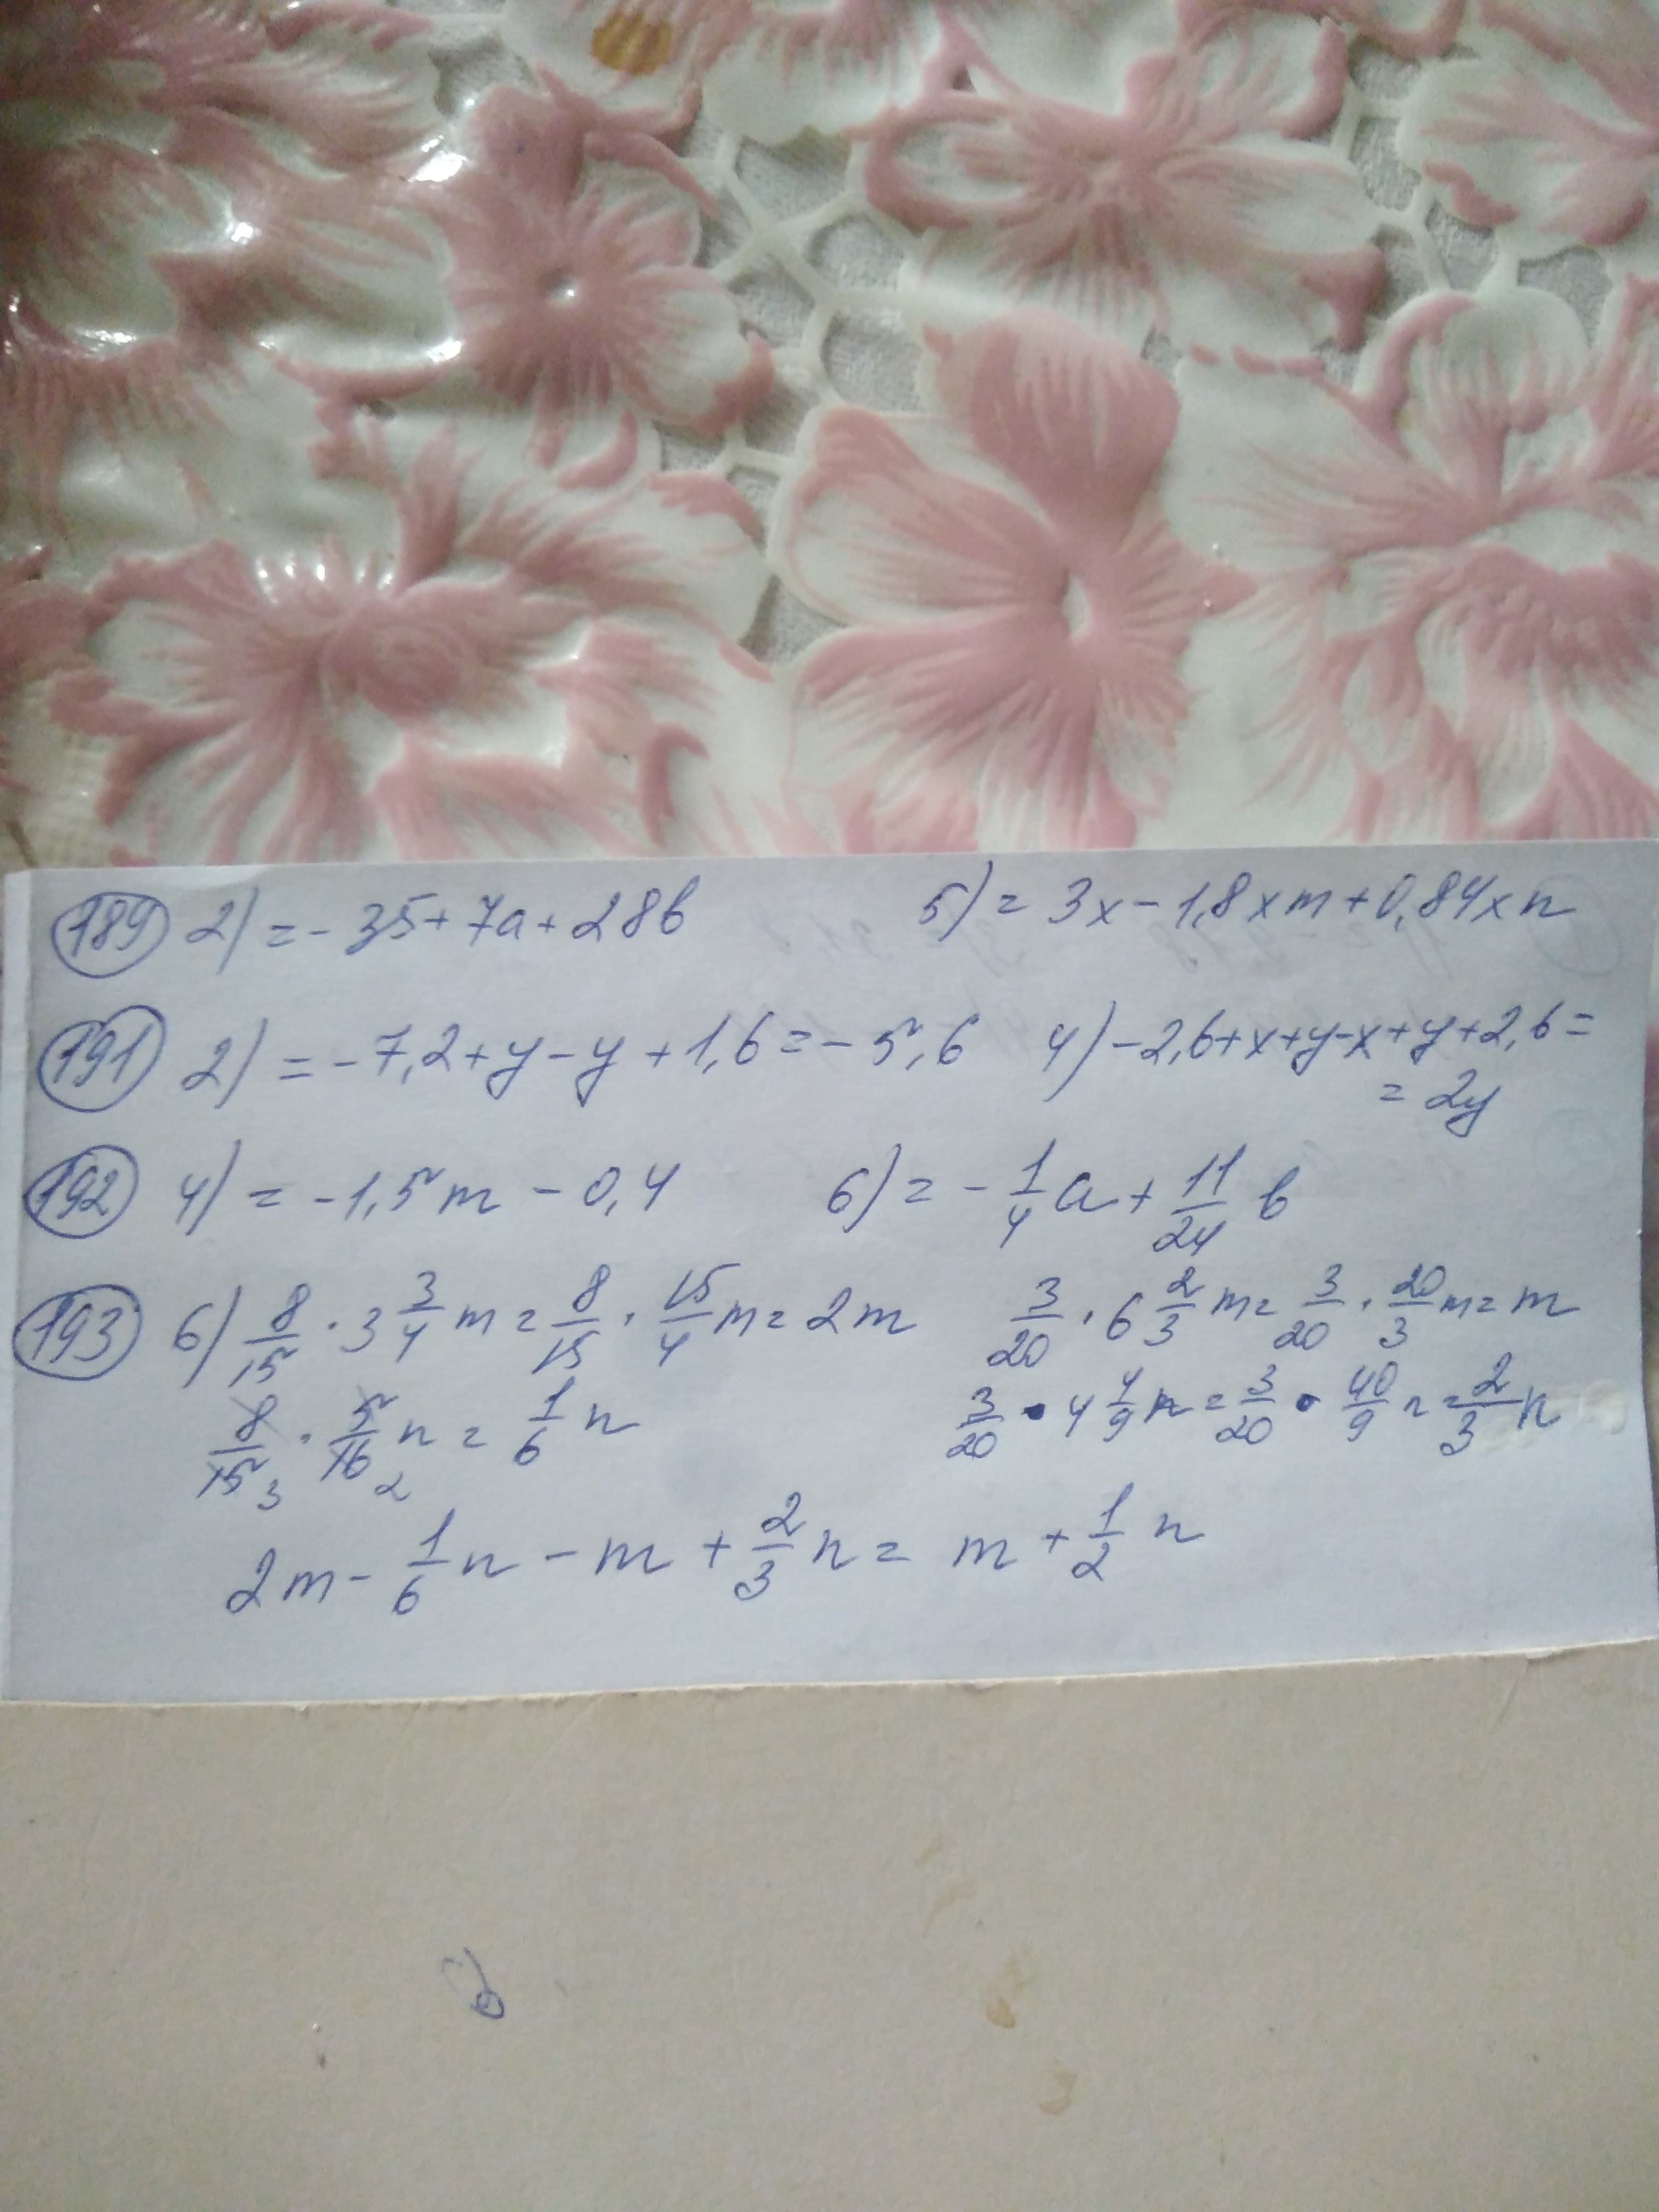 189 2) = - 35 + 7a + 28b 5) = 3x - 1,8xm + 0,84xn
191 2) = - 7,2 + y - y + 1,6 = - 5,6 4) - 2,6 + x + y - x + y + 2,6 =
= 2y
192 4) = - 1,5m - 0,4 6) = - 1/4 a + 11/24 b
193 6) 8/15 · 3 3/4 m = 8/15 · 15/4 m = 2m 3/20 · 6 2/3 m = 3/20 · 20/3 m = m
8/15 3 · 5/16 2 n = 1/6 n 3/20 · 4 4/9 n = 3/20 · 40/9 n = 2/3 n
2m - 1/6 n - m + 2/3 n = m + 1/2 n